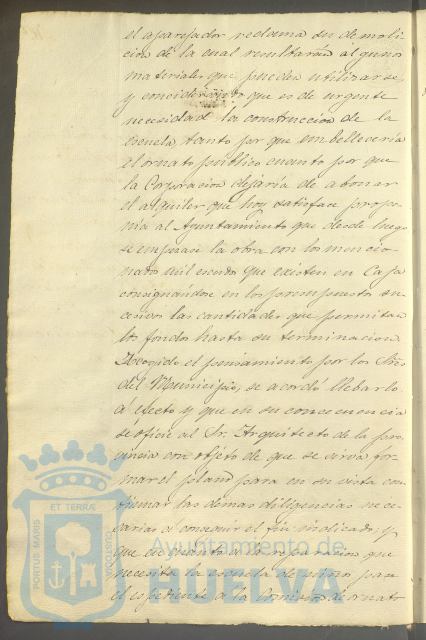 el aparejador reclama su demoli
cion de la cual resultarán algunos
materiales que pueden utilizarse,
y considerando que es de urgente
necesidad la construccion de la
escuela, tanto por que embelleceria
al ornato público cuanto por que
la Corporacion dejaria de abonar
el alquiler que hoy satisface propo
nia al Ayuntamiento que desde luego
se empiese la obra con los mencio
nados mil escudos que existen en Caja
consignándose en los presupuestos su
cesivos las cantidades que permitan
los fondos hasta su terminacion
Acogido el pensamiento por los Sres
del Municipio, se acordó llebarlo
á efecto y que en su concecuencia
se oficie al Sr. Arquitecto de la pro
vincia con objeto de que se sirva for
mar el plano para en su vista con
tinuar las demas diligencias nece
sarias á conseguir el fin indicado; y
que en cuanto á la reparacion que
necesita la escuela de niños pase
el espediente á la Comision de ornato
PORTUS MARIS
ET TERRAE
CUSTODIA
Ayuntamiento de
HUELVA